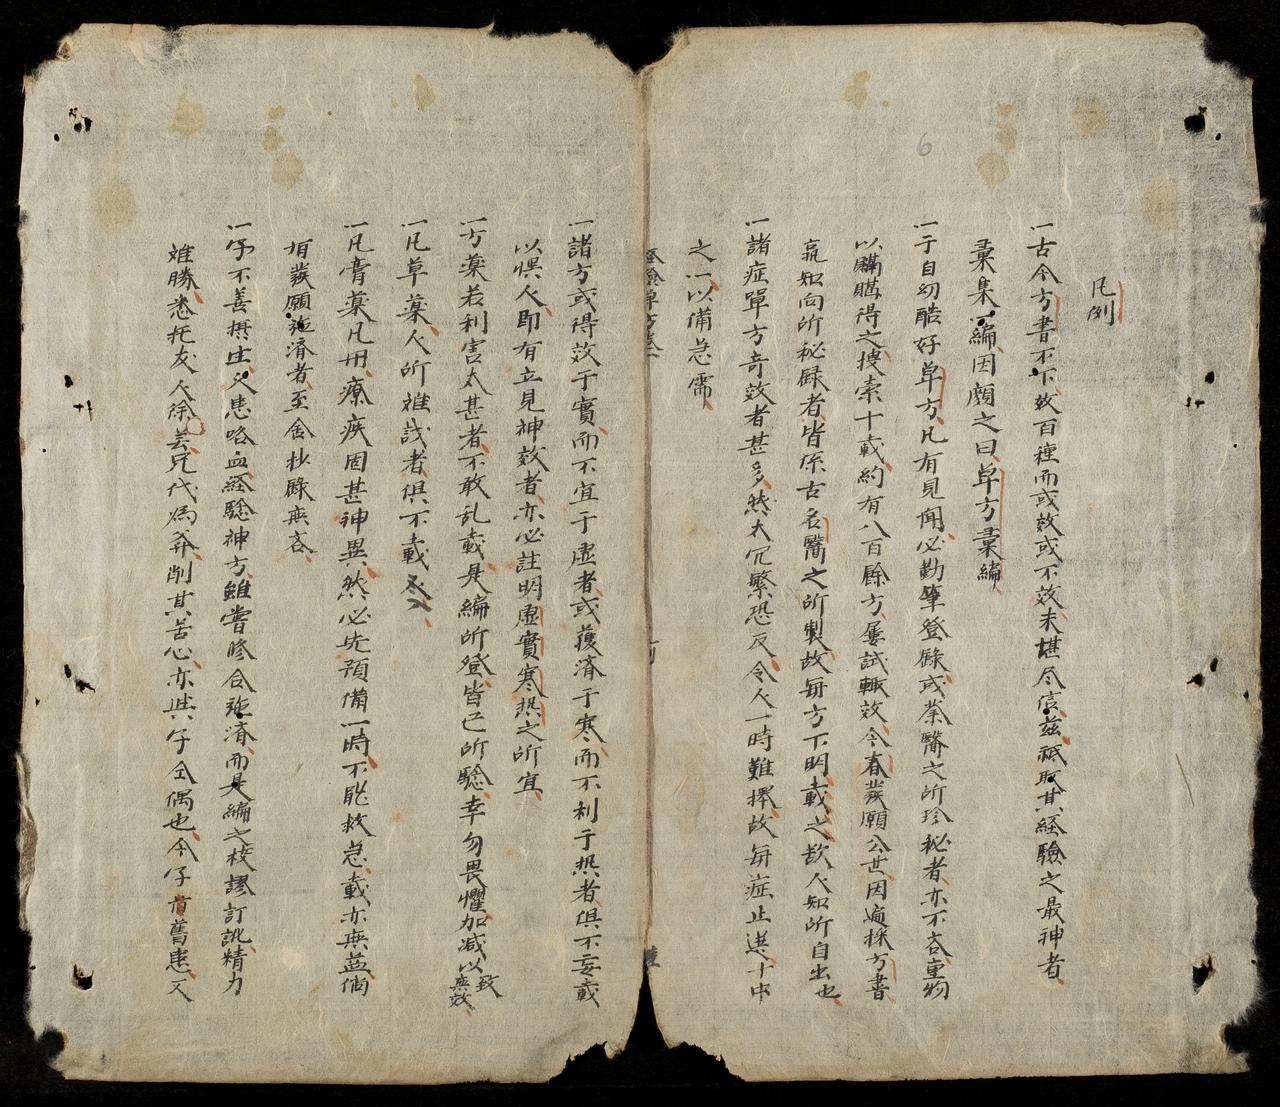 6
凡例
一古今方書不下数百種而或效或不效未堪尽信兹祇取其经驗之最神者
彙集一編因顏之曰单方彙編
一予自幼酷好单方凡有見聞必勤筆登録或為醫之所珍秘者亦不吝重物
以購得之搜索十載約有八百餘方屡試輒效今春發願公世因遍採方書
凡如向所秘録者皆係古名醫之所製故每方下明載之欲人知所自出也
一諸症單方奇效者甚多然太冗繁恐反令人一時難擇故每症止選十中
之一以備急需
经驗单方卷一
一諸方或得效于實而不宜于虚者或獲濟于寒而不利于热者俱不妄載
以悮人即有立見神效者亦必註明虚實寒热之所宜
一方藥若利害太甚者不敢乱載是編所登皆已所騐幸勿畏懼加减以致無效
一凡草藥人所难識者俱不載
一凡膏藥凡用療疾固甚神異然必先預備一時不能救急載亦無益倘
有發願施濟者至舍抄録無吝
一予不善摂生久患咯血经騐神方雖嘗修合施濟而是編之校謬訂訛精力
难勝悉托友人徐芸兄代為斧削其苦心亦與予仝偶也今予因舊患又